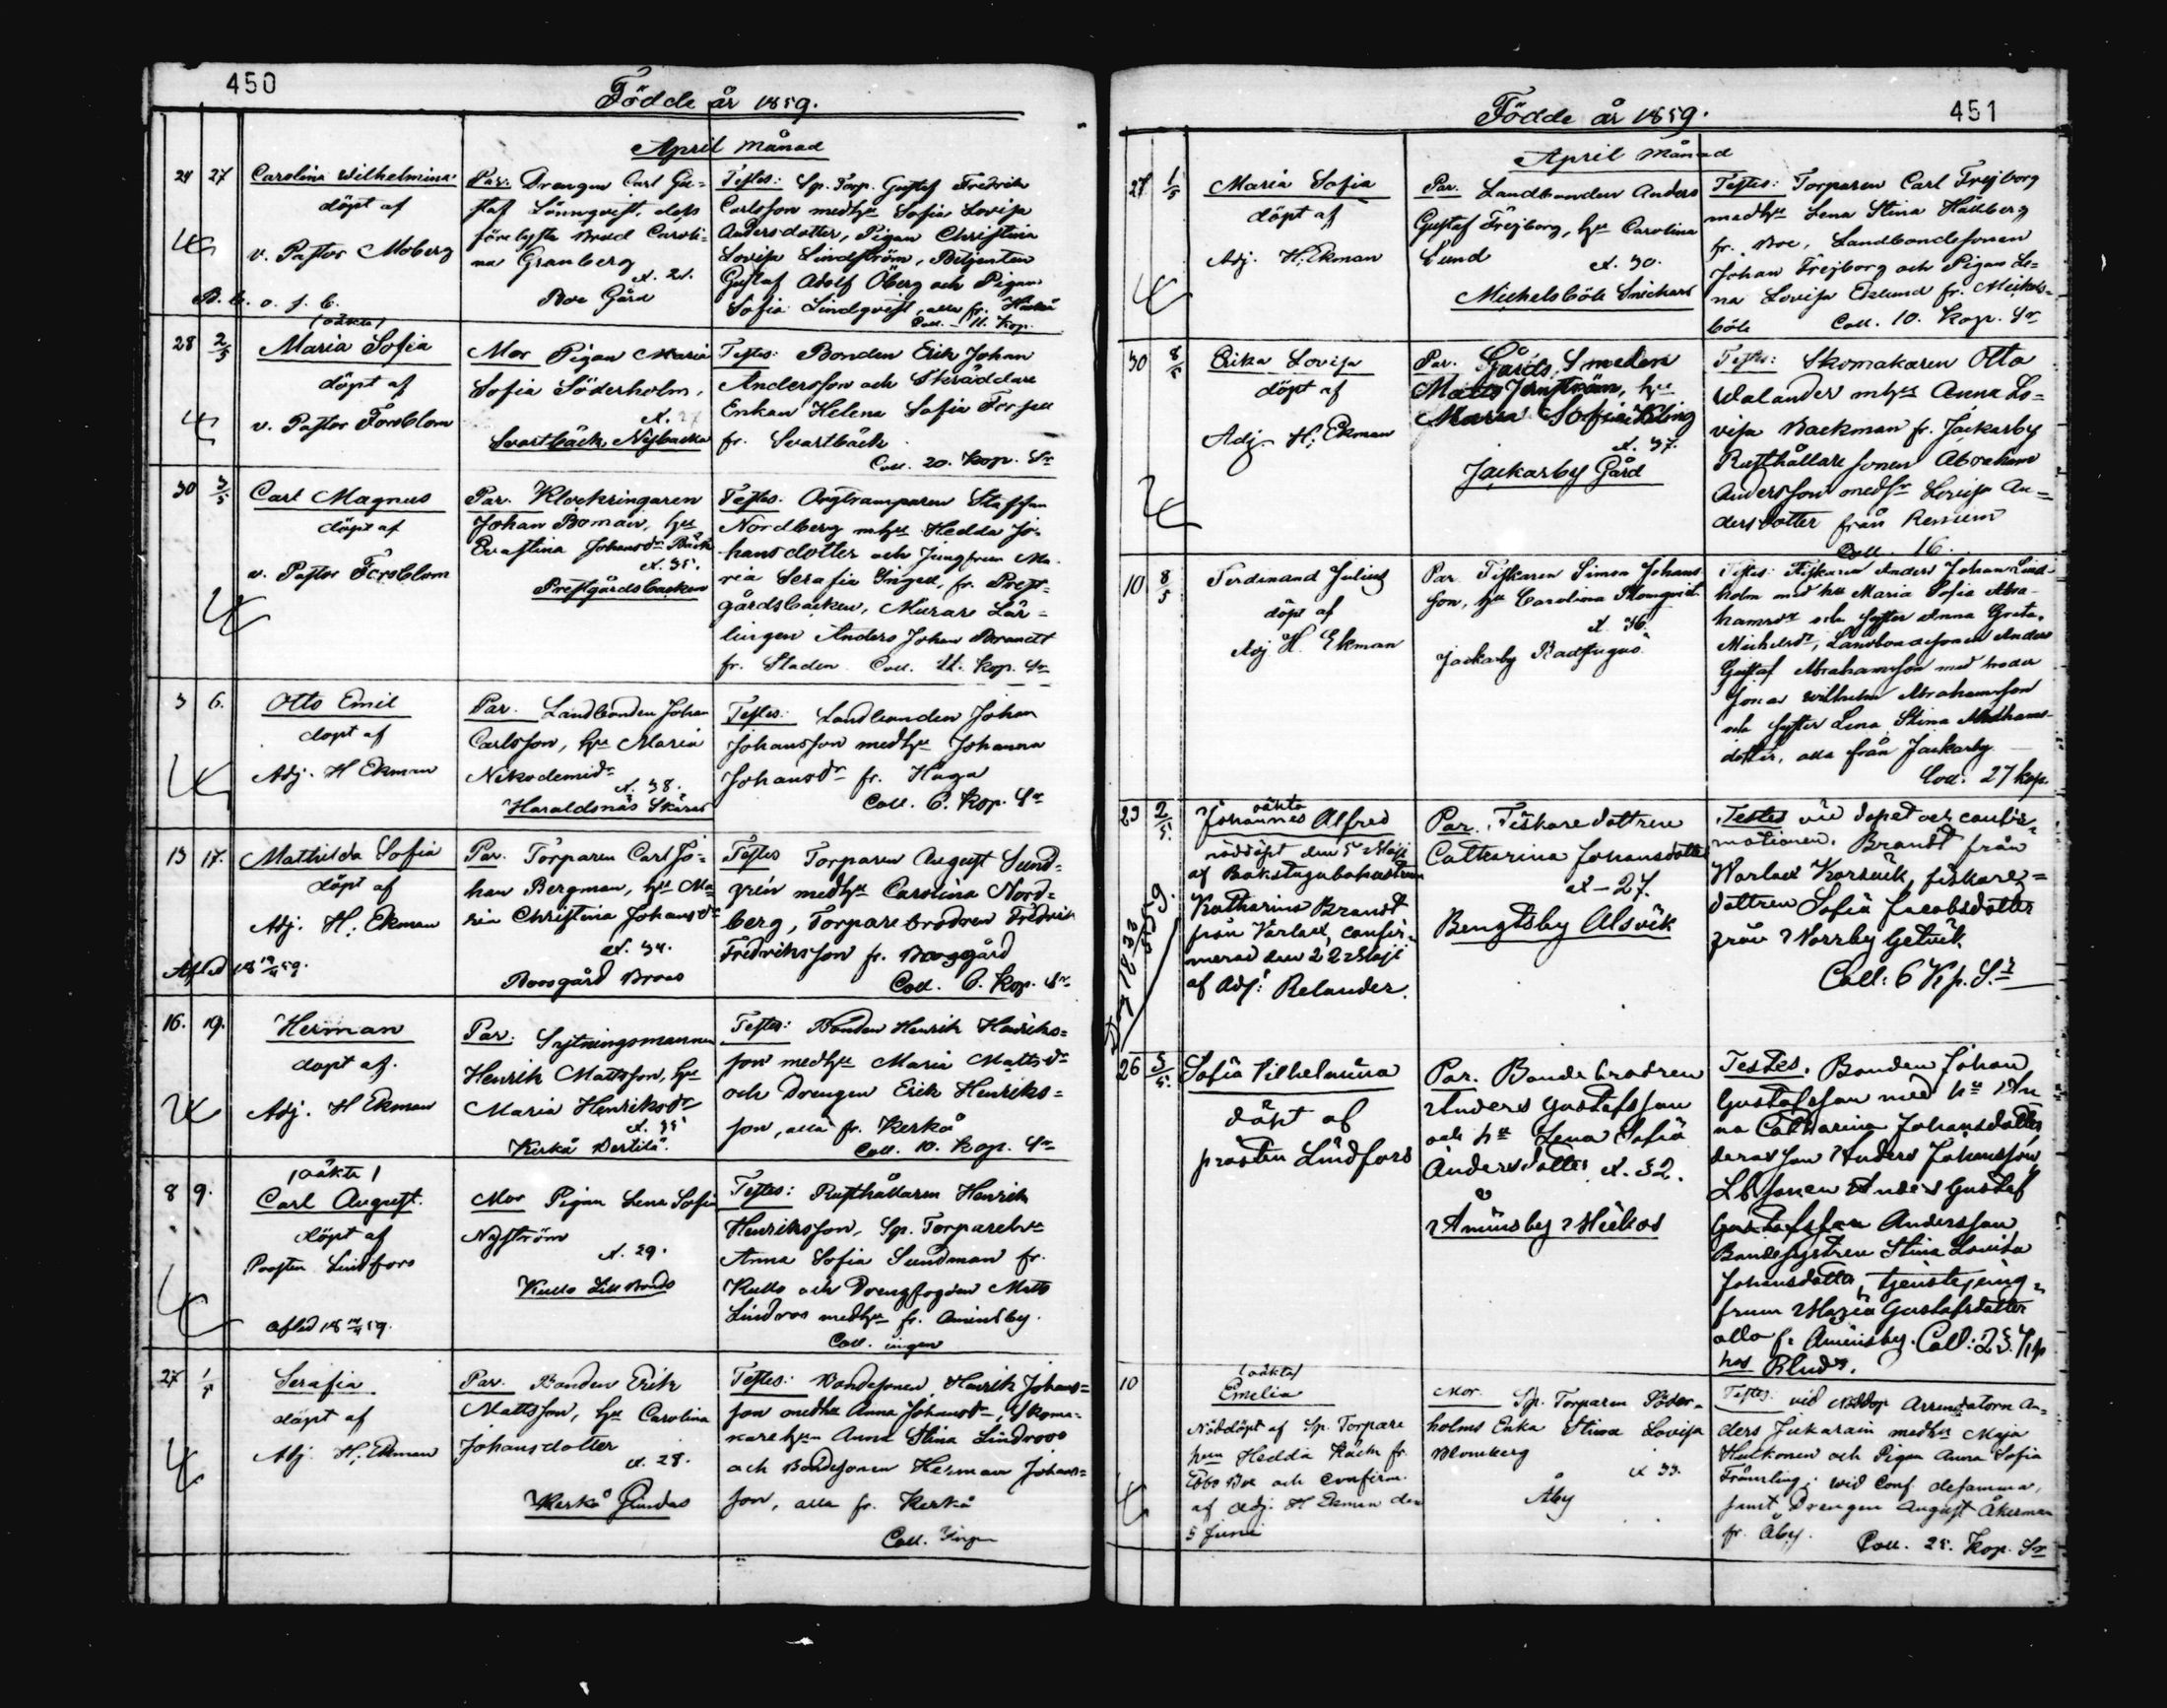 450
Födde år 1859.
April månad
24 27 Carolina Wilhelmina
döpt af
v. Pastor Moberg
Par. Drängen Carl Gu=
staf Lönnqvist, dess
förelysta Brud Caroli=
na Granberg
Boe Gård
Testes: Sp. Torp. Gustaf Fredrik
Carlsson med hu Sofia Lovisa
Andersdotter, Pigan Christina
Lovisa Lindström, Betjenten
Gustaf Adolf Öberg och Pigan
Sofia Lindqvist, alla fr.
Coll. 11. Kop.
28 2/5 (oäkta)
Maria Sofia
döpt af
v. Pastor Forsblom
Mor Pigan Maria
Sofia Söderholm,
Svartbäck Nybacka
Testes: Bonden Erik Johan
Andersson och Skräddare
Enkan Helena Sofia Forsell
fr. Svartbäck
Coll. 20. Kop. Sr
30 3/5 Carl Magnus
döpt af
v. Pastor Forsblom
Par. Klockringaren
Johan Boman, hu
Evastina Johansdr Bäck
Æ. 35.
Prestgårdsbacken
Testes: Orgtramparen Staffan
Nordberg m hu Hedda Jo=
hansdotter och Jungfrun Ma=
ria Serafia Ingell, fr. Prest=
gårdsbacken, Murare Lär=
lingen Anders Johan Brandt
fr. Staden Coll. 22. Kop. Sr
3 6. Otto Emil
döpt af
Adj. H Ekman
Par. Landbonden Johan
Carlsson, hu Maria
Nikodemidr
Æ. 38.
Haraldsnäs Skäras
Testes: Landbonden Johan
Johansson med hu Johanna
Johansdr fr. Haga
Coll. 6. Kop. Sr
13 17. Mathilda Sofia
döpt af
Adj. H. Ekman
Par. Torparen Carl Jo=
han Bergman, hu Ma=
ria Christina Johansdr
Æ. 34.
Boesgård Broas
Testes Torparen August Lund=
grén med hu Carolina Nord=
berg, Torpare brodren Fredrik
Fredriksson fr. Boesgård
Coll. 6. Kop. Sr
16. 19. Herman
döpt af.
Adj. H Ekman
Par: Sytningsmannen
Henrik Mattsson, hu
Maria Henriksdr
Æ. 35
Kerkå Bertila.
Testes: Bonden Henrik Henriks=
son med hu Maria Mattsdr
och Drengen Erik Henriks=
son, alla fr. Kerkå
Coll. 10. Kop. Sr
8 9. (oäkta)
Carl August.
döpt af
Prosten Lindfors
Mor Pigan Lena Sofia
Nyström
Æ. 29.
Kullo Lill Bonds
Testes: Rusthållaren Henrik
Henriksson, Sp. Torpare hu
Anna Sofia Sundman fr.
Kullo och Drengfogden Matts
Lindroos med hu fr. Aminsby.
Coll. ingen
27 1/5 Serafia
döpt af
Adj. H. Ekman
Par. Bonden Erik
Mattsson, hu Carolina
Johansdotter
Æ. 28.
Kerkå
Testes: Bondesonen Henrik Johans=
son med hu Anna Johansdr, Skoma=
kare hun Anna Stina Lindroos
och Bondesonen Herman Johans=
son, alla fr. Kerkå
Coll. Ingen
Födde år 1859.
451
April månad
27 1/5 Maria Sofia
döpt af
Adj. H. Ekman
Par. Landbonden Anders
Gustaf Frejborg, hu Carolina
Lund
Æ. 30.
Michelsböle Snickars
Testes: Torparen Carl Frejborg
med hu Lena Stina Hällberg
fr. Boe, Landbondesonen
Johan Frejborg och Pigan Le=
na Lovisa Eklund fr. Mickels=
böle Coll. 10. Kop. Sr
30 8/5 Erika Lovisa
döpt af
Adj. H. Ekman
Par. Gårds Smeden
Matts Jernström, hu
Maria Sofia Kling
Æ. 37.
Jackarby Gård
Testes: Skomakaren Otto
Walander m hu Anna Lo=
visa Backman fr. Jackarby
Rusthållare sonen Abraham
Andersson med sr Lovisa An=
dersdotter från Renum
Coll. 16.
10 8/5 Ferdinand Julius
döpt af
Adj. H. Ekman
Par. Fiskaren Simon Johans
son, hu Carolina Blomqvist
Æ 36.
Jackarby Badstugus
Testes: Fiskaren Anders Johan Lind=
holm med hu Maria Sofia Abra=
hamsdr och syster Anna Greta
Michelsdr, Landbondesonen Anders
Gustaf Abrahamsson med broder
Jonas Wilhelm Abrahamsson
och syster Lena Stina Abrahams=
dotter, alla från Jackarby.
Coll. 27 kop.
23 2/5 oäkta
Johannes Alfred
nöddöpt den 5 Maji
af Bakstugubohustrun
Katharina Brandt
från Varlax, confir=
merad den 22 Maji
af Adj: Relander.
Par. Fiskare dottren
Catharina Johansdotter
Æ - 27.
Bengtsby Alsvik
Testes vid dopet och confir=
mationen. Brandt från
Warlax Korsvik, fiskare=
dottren Sofia Jacobsdotter
från Norrby Getvik.
Coll: 6 Kp. Sr
26 5/5. Sofia Vilhelmina
döpt af
prosten Lindfors
Par. Bonde brodren
Anders Gustafsson
och hu Lena Sofia
Andersdotter Æ. 32.
Aminsby Mickos
Testes. Bonden Johan
Gustafsson med hu An
na Catharina Johansdotter,
deras son Anders Johansson,
Lb sonen Anders Gustaf
Gustafsson Andersson
Bondesystren Stina Lovisa
Johansdotter, tjenstejung=
frun Maria Gustafsdotter
alla fr Aminsby. Coll: 25 Kp
10 (oäkta)
Emelia
Nöddöpt af Sp. Torpare
hun Hedda fr.
Boe och confirm.
af Adj. H Ekman den
5 Juni
Mor. Sp. Torparen Söder=
holms Enka Stina Lovisa
Blomberg
Æ 33.
Åby
Testes: vid Nöddop Arrendatorn An=
ders Jukarain med hu Maja
Huikonen och Pigan Anna Sofia
Främling; wid Conf. desamma,
samt Drengen August Åkerman
fr. Åby.
Coll. 25. Kop. Sr